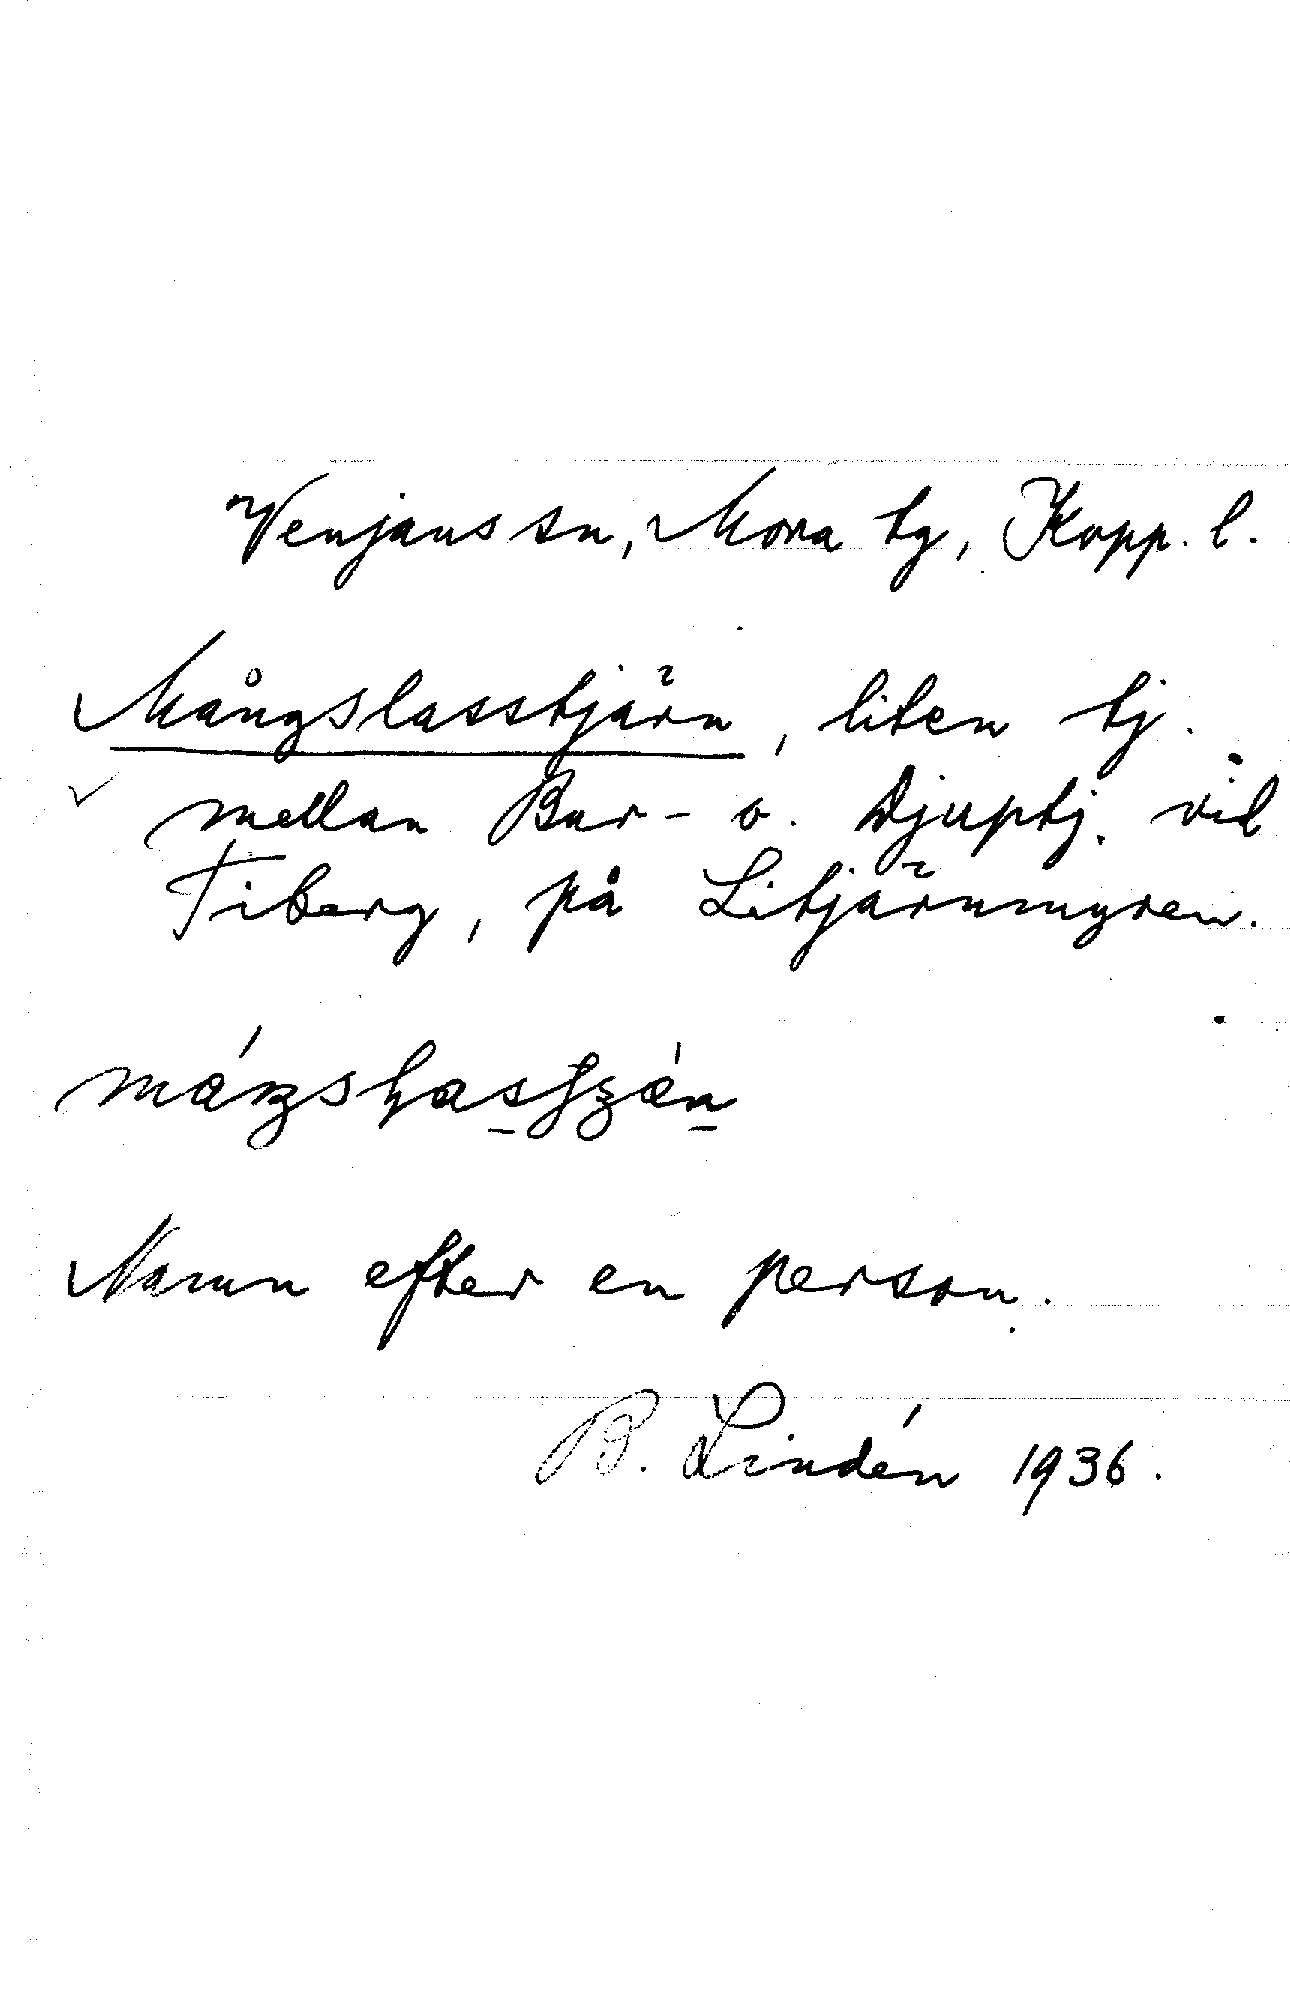 Venjans sn, Mora tg, Kopp. l.
Mångslasstjärn, liten tj.
mellan Bur- o. Djuptj. vid
Tiberg, på Litjärnmyren.
Namn efter en person.
B. Lindén 1936.